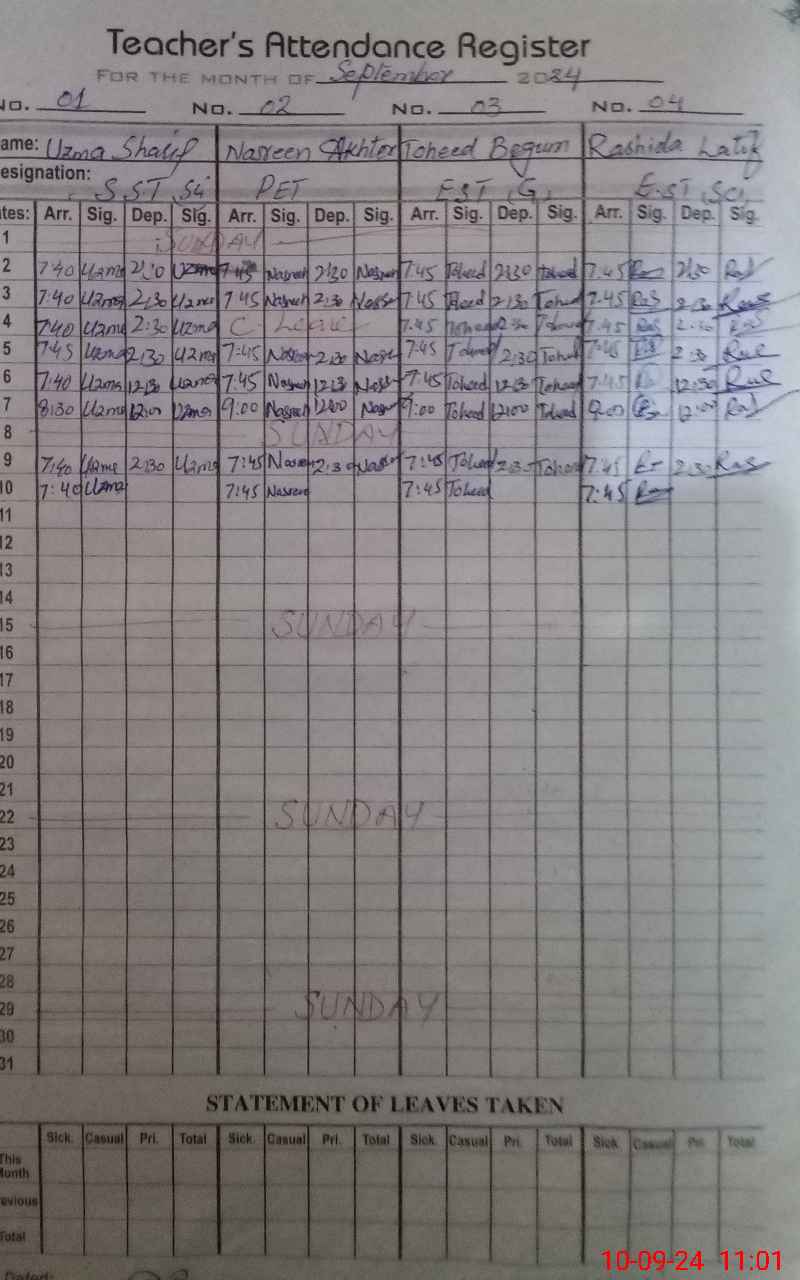 Teacher's Attendance Register
FOR THE MONTH OF September 2024
No. 01 No. 02 No. 03 No. 04
ame: Uzma Sharif Nasreen Akhtar Toheed Begum Rashida Latif
esignation: S.S.T, Sci PET E.S.T, G. E.S.T, Sci
ates: Arr. Sig. Dep. Sig. Arr. Sig. Dep. Sig. Arr. Sig. Dep. Sig. Arr. Sig. Dep. Sig.
1 SUNDAY
2 7:40 Uzma 2:30 Uzma 7:45 Nasreen 2:30 Nasreen 7:45 Toheed 2:30 Toheed 7:45 2:30
3 7:40 Uzma 2:30 Uzma 7:45 Nasreen 2:30 7:45 Toheed 2:30 Toheed 7:45 2:30
4 7:40 Uzma 2:30 Uzma C. Leave 7:45 Toheed 2:30 Toheed 7:45 2:30
5 7:45 Uzma 2:30 Uzma 7:45 Nasreen 2:30 7:45 Toheed 2:30 Toheed 7:45 2:30
6 7:40 Uzma 12:30 Uzma 7:45 Nasreen 12:30 7:45 Toheed 12:30 Toheed 7:45 12:30
7 8:30 Uzma 12:00 Uzma 9:00 Nasreen 12:00 9:00 Toheed 12:00 Toheed 9:00 12:00
8 SUNDAY
9 7:40 Uzma 2:30 Uzma 7:45 Nasreen 2:30 7:45 Toheed 2:30 Toheed 7:45 2:30
10 7:40 Uzma 7:45 Nasreen 7:45 Toheed 7:45
11
12
13
14
15 SUNDAY
16
17
18
19
20
21
22 SUNDAY
23
24
25
26
27
28
29 SUNDAY
30
31
STATEMENT OF LEAVES TAKEN
Sick. Casual Pri. Total Sick. Casual Pri. Total Sick. Casual Pri. Total Sick. Casual Pri. Total
This
Month
evious
Total
Dated:
10-09-24 11:01